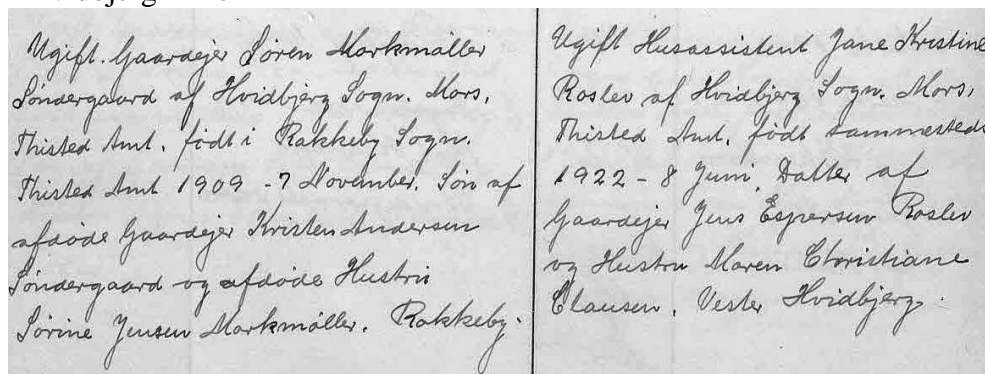 Ugift. Gaardejer Søren Markmøller
Søndergaard af Hvidbjerg Sogn. Mors,
Thisted Amt. født i Rakkeby Sogn.
Thisted Amt 1909 - 7 November. Søn af
afdøde Gaardejer Kristen Andersen
Søndergaard og afdøde Hustru
Sørine Jensen Markmøller. Rakkeby.
Ugift Husassistent Jane Kristine
Roslev af Hvidbjerg Sogn. Mors,
Thisted Amt. født sammesteds
1922 - 8 Juni. Datter af
Gaardejer Jens Espersen Roslev
og Hustru Maren Christiane
Clausen. Vester Hvidbjerg.